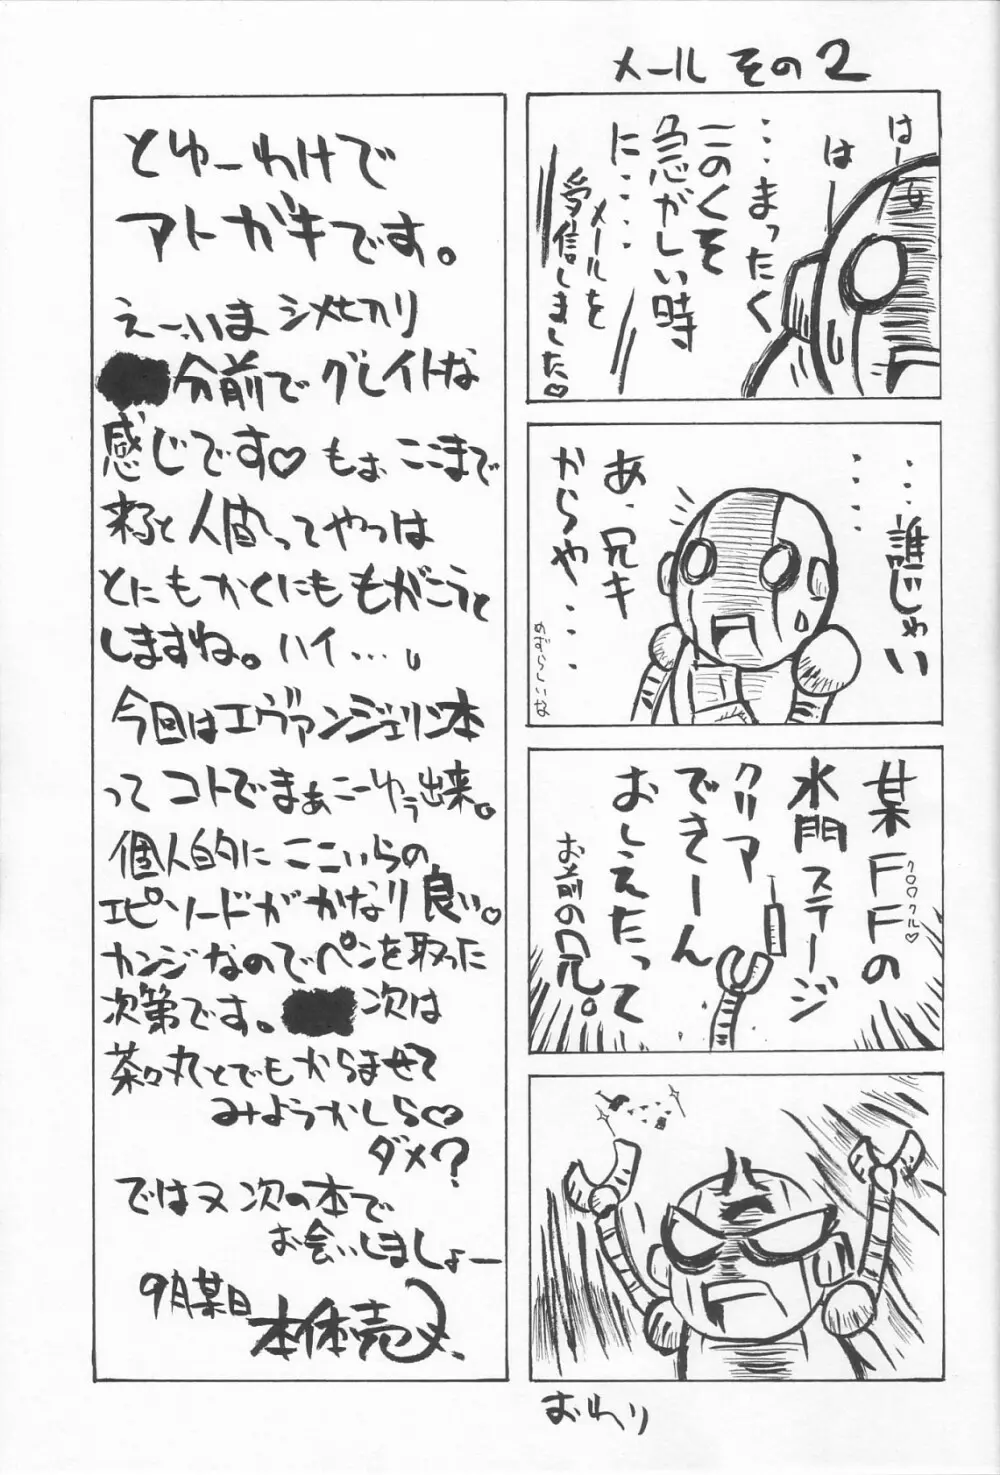 メール その2
はーっ
は
…まったく
このくそ
急がしい時
に・・・・
メールを
受信しました♡
・・・誰じゃい
・・・・
あ、兄キ
からや・・・
めずらしいな
某FFの
クロ○クル♡
水門ステージ
クリア
できーん
おしえたって
お前の兄。
おわり
とゆーわけで
アトガキです。
えー、いまシメキリ
分前でグレイトな
感じです♡もぉここまで
来ると人間ってやつは
とにもかくにももがこうと
しますね。ハイ…。
今回はエヴァンジェリン本
ってコトでまぁこーゆぅ出来。
個人的にここいらの
エピソードがかなり良い♡
カンジなのでペンを取った
次第です。次は
茶々丸とでもからませて
みようかしら♡
ダメ?
ではヌ次の本で
お会いしましょー
9月某日
本体売ヌ